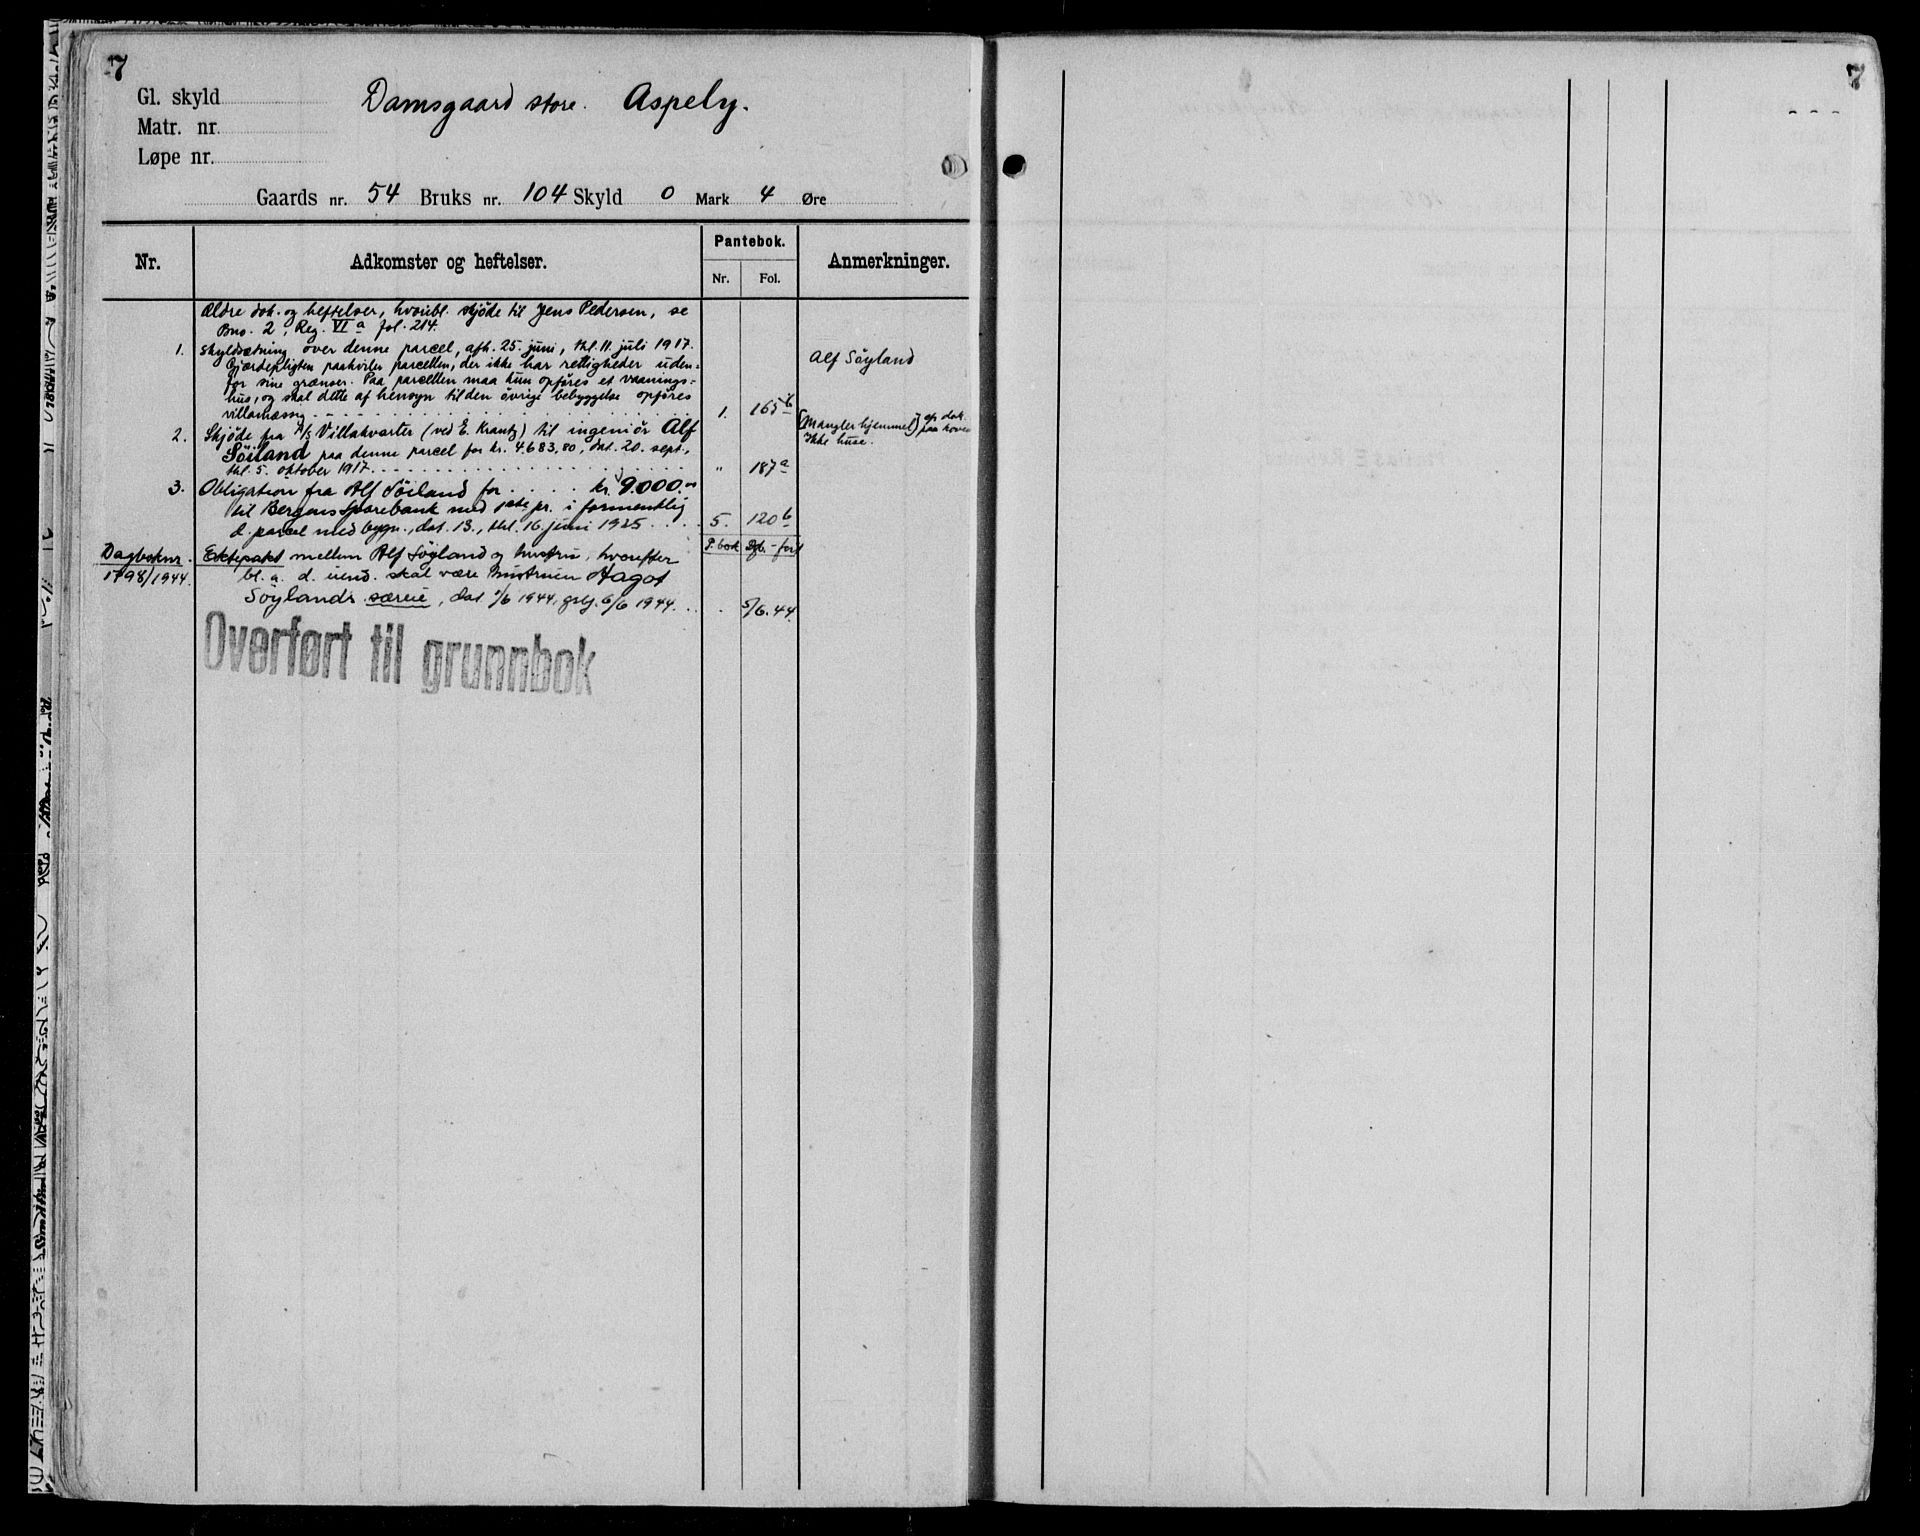 7
Gl. skyld
Damsgaard store. Aspely.
Matr. nr.
Løpe nr.
Gaards nr. 54 Bruks nr. 104 Skyld 0 Mark 4 Øre
Nr.
Adkomster og heftelser.
Pantebok.
Nr. Fol.
Anmerkninger.
Ældre dok. og heftelser, hvoribl. skjøde til Jens Pedersen, se
Bno. 2, Reg. VI a fol. 214.
1. Skyldsætning over denne parcel, afh. 25. juni, thl. 11. juli 1917.
Gjærdepligten paahviler parcellen, der ikke har rettigheder uden-
for sine grænser. Paa parcellen maa kun opføres et vaanings-
hus, og skal dette af hensyn til den øvrige bebyggelse opføres
villamæssig 1. 165 b
Alf Søyland
2. Skjøde fra A/S Villakvarter (ved E. Krantz) til ingeniør Alf
Söiland paa denne parcel for kr. 4.683,80, dat. 20. sept.,
thl. 5. oktober 1917. " 187 a
(Mangler hjemmel) paa
Ikke huse.
3. Obligation fra Alf Söiland for kr. 9.000.
til Bergens Sparebank med 1ste pr. i formentlig
d. parcel med bygn., dat. 13., thl. 16. juni 1925 5. 120 b
P. bok Db.
Dagboknr. Ektepakt mellem Alf Søyland og hustru, hvorefter
1798/1944. bl. a. d. eiend. skal være hustruen Hagot
Søylands særeie, dat 1/6 1944, 6/6 1944. 5/6.44.
Overført til grunnbok
7